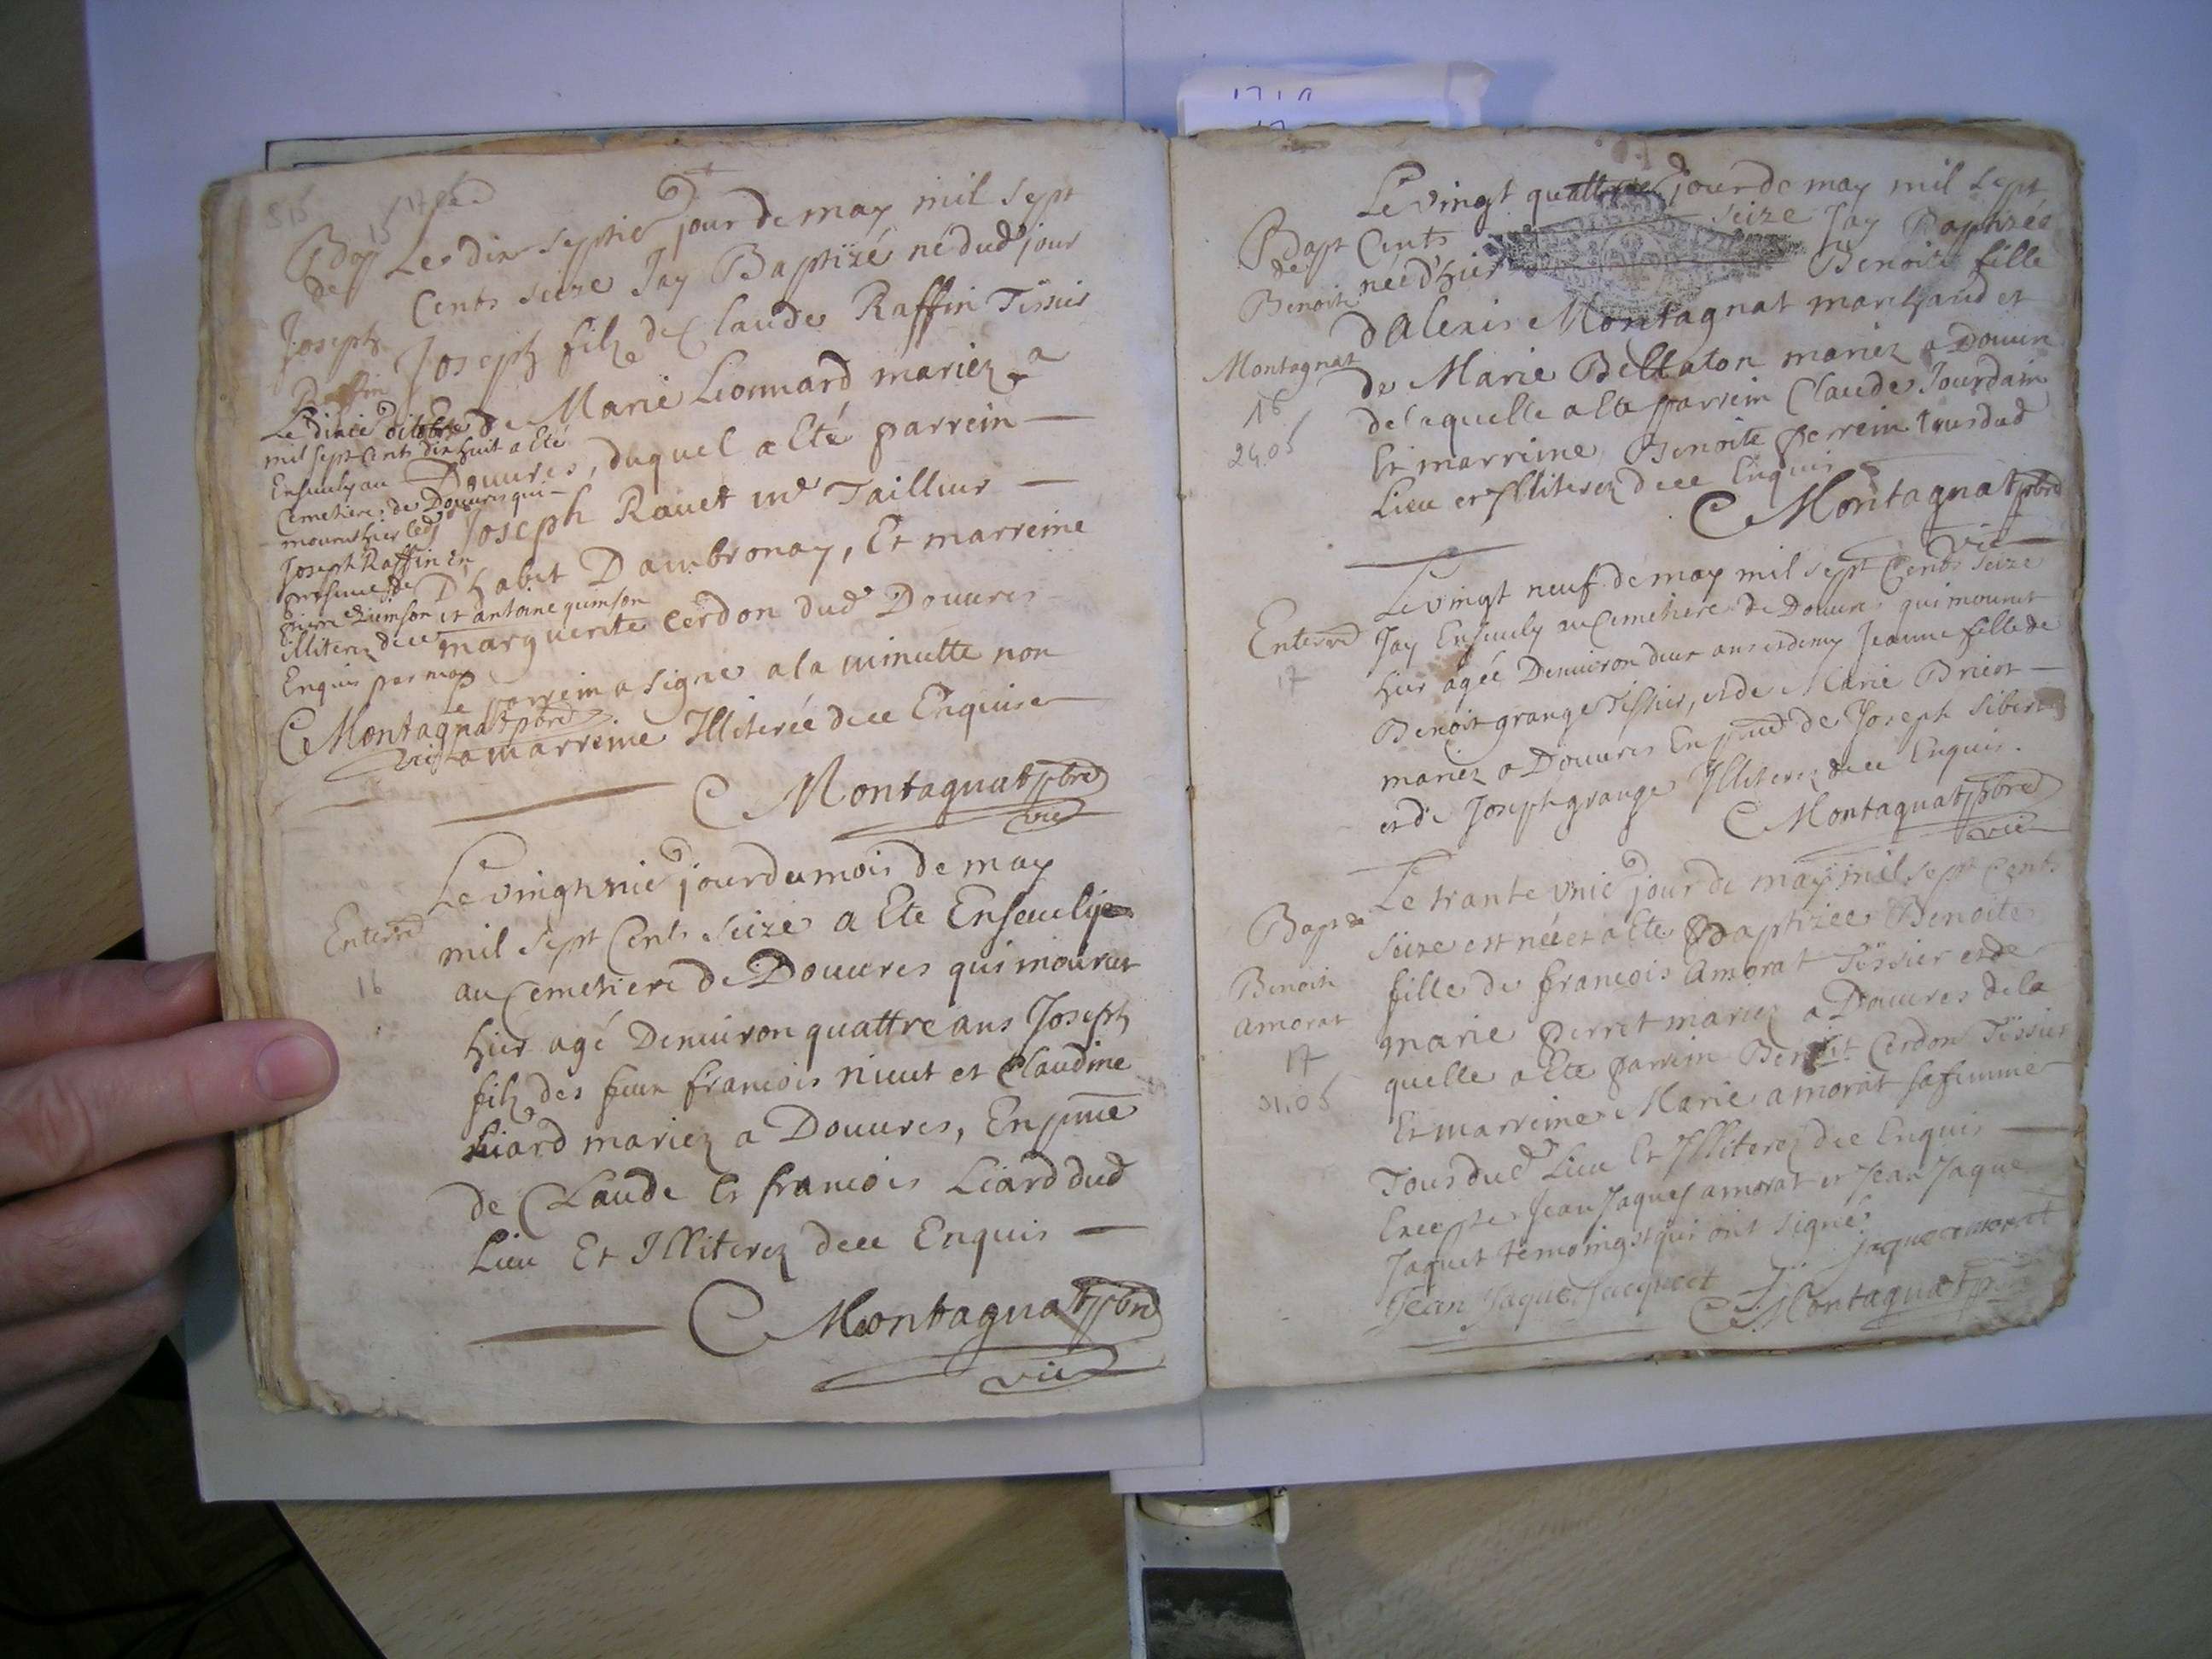 Bap
de
Joseph
Raffin
Le dix septie jour de may mil sept
Cents seize Jay Baptizé né dud jour
Joseph filz de Claude Raffin Tissier
Et de Marie Lionnard mariez a
Douures, duquel a Eté parrein
Joseph Rauet md Tailleur
D'habit Dambronay, Et marreine
marguerite Cerdon dud Douures
Le parrein a signé a la minutte non
la marreine Illiterée dece Enquise
C Montagnat pbre
vic
Le dixie octobre
mil sept Cents dix huit a Eté
Enseuely au
Cemetiere de Douures qui
mourut hier led
Joseph Raffin En
presence de
pierre quinson et antoine quinson
illiterez dece
Enquis par moy
C Montagnat pbre
vic
Enterrd
16
Le vingt vnie jour du mois de may
mil sept Cents seize a Ete Enseuely
au Cemetiere de Douures qui mourut
hier agé Denuiron quattre ans Joseph
filz des feux francois niuut et Claudine
Liard mariez a Douures, En pnce
de CLaude Et francois Liard dud
Lieu Et Illiterez dece Enquis
C Montagnat pbre
vic
Bapt
de
Benoite
Montagnat
16
24.05
Le vingt quattrie jour de may mil sept
Cents seize Jay Baptizée
née d'hier Benoite fille
d'Alexis Montagnat marchand et
de Marie Bellaton mariez a Douures
de laquelle a Ete parrein Claude Jourdain
Et marreine Benoite perrein tous dud
Lieu et Illiterez dece Enquis
C Montagnat pbre
vic
Enterrd
17
Le vingt neuf de may mil sept Cents seize
Jay Enseuely au Cemetiere de Douures qui mourut
hier agée Denuiron deux ans et demy Jeanne fille de
Benoit grange Tissier, et de Marie Briet
mariez a Douures En pnce de Joseph Sibert
et de Joseph grange Illiterez dece Enquis.
C Montagnat pbre
vic
Bapt de
Benoite
amorat
17
31.05
Le trante vnie jour de may mil sept Cents
seize est née et a Ete Baptizee Benoite
fille de francois Amorat Tissier et de
marie perret mariez a Douures de la
quelle a Ete parrein Benoit Cerdon Tissier
Et marreine Marie amorat sa femme
Tous dud Lieu Et Illiterez dece Enquis
Excepte Jean Jaques amorat et Jean Jaque
Jaquet temoings qui ont signé
jaque amorat
Jean Jaque Jacquet
C Montagnat